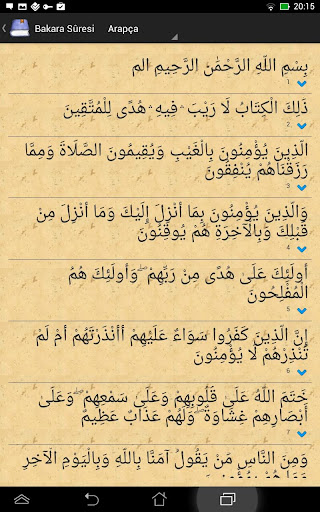 20:15
Bakara Sûresi Arapça
بِسْمِ اللَّهِ الرَّحْمَٰنِ الرَّحِيمِ الم
1
ذَٰلِكَ الْكِتَابُ لَا رَيْبَ ۛ فِيهِ ۛ هُدًى لِّلْمُتَّقِينَ
2
الَّذِينَ يُؤْمِنُونَ بِالْغَيْبِ وَيُقِيمُونَ الصَّلَاةَ وَمِمَّا
رَزَقْنَاهُمْ يُنْفِقُونَ
3
وَالَّذِينَ يُؤْمِنُونَ بِمَا أُنْزِلَ إِلَيْكَ وَمَا أُنْزِلَ مِنْ
قَبْلِكَ وَبِالْآخِرَةِ هُمْ يُوقِنُونَ
4
أُولَٰئِكَ عَلَىٰ هُدًى مِنْ رَبِّهِمْ ۖ وَأُولَٰئِكَ هُمُ
الْمُفْلِحُونَ
5
إِنَّ الَّذِينَ كَفَرُوا سَوَاءٌ عَلَيْهِمْ أَأَنْذَرْتَهُمْ أَمْ لَمْ
تُنْذِرْهُمْ لَا يُؤْمِنُونَ
6
خَتَمَ اللَّهُ عَلَىٰ قُلُوبِهِمْ وَعَلَىٰ سَمْعِهِمْ ۖ وَعَلَىٰ
أَبْصَارِهِمْ غِشَاوَةٌ ۖ وَلَهُمْ عَذَابٌ عَظِيمٌ
7
وَمِنَ النَّاسِ مَنْ يَقُولُ آمَنَّا بِاللَّهِ وَبِالْيَوْمِ الْآخِرِ
وَمَا هُمْ بِمُؤْمِنِينَ